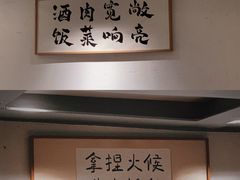 酒肉宽敞
饭菜响亮
拿捏火候